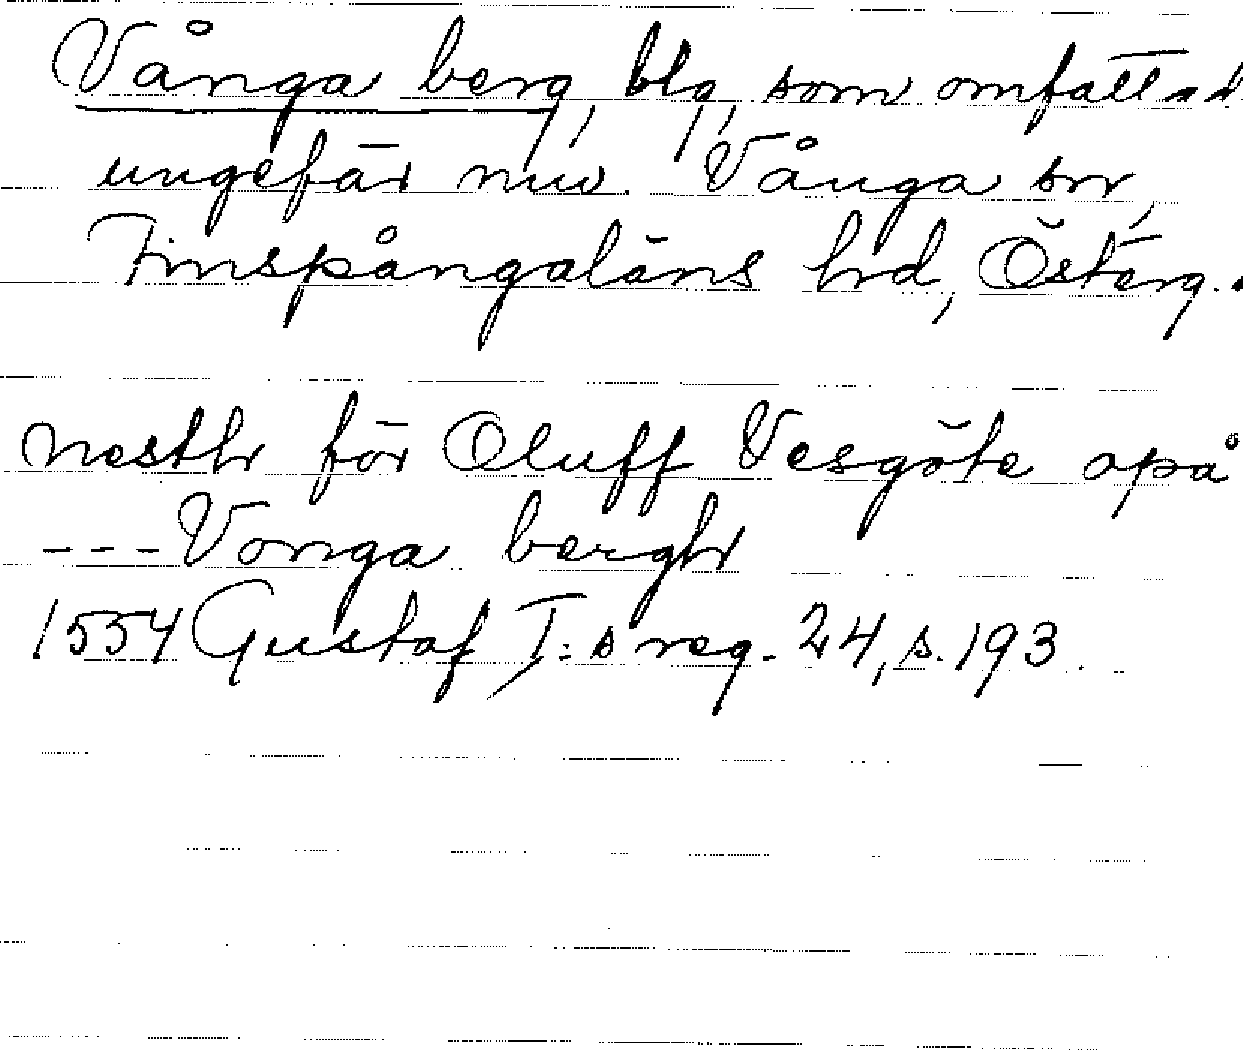 Vånga berg, blg, som omfattad
ungefär nuv. Vånga sn,
Finspångaläns hrd, Österg.
nesthr för Oluff Vesgöte opå
---Vonga berghr
1554 Gustaf I:s reg. 24, s. 193.